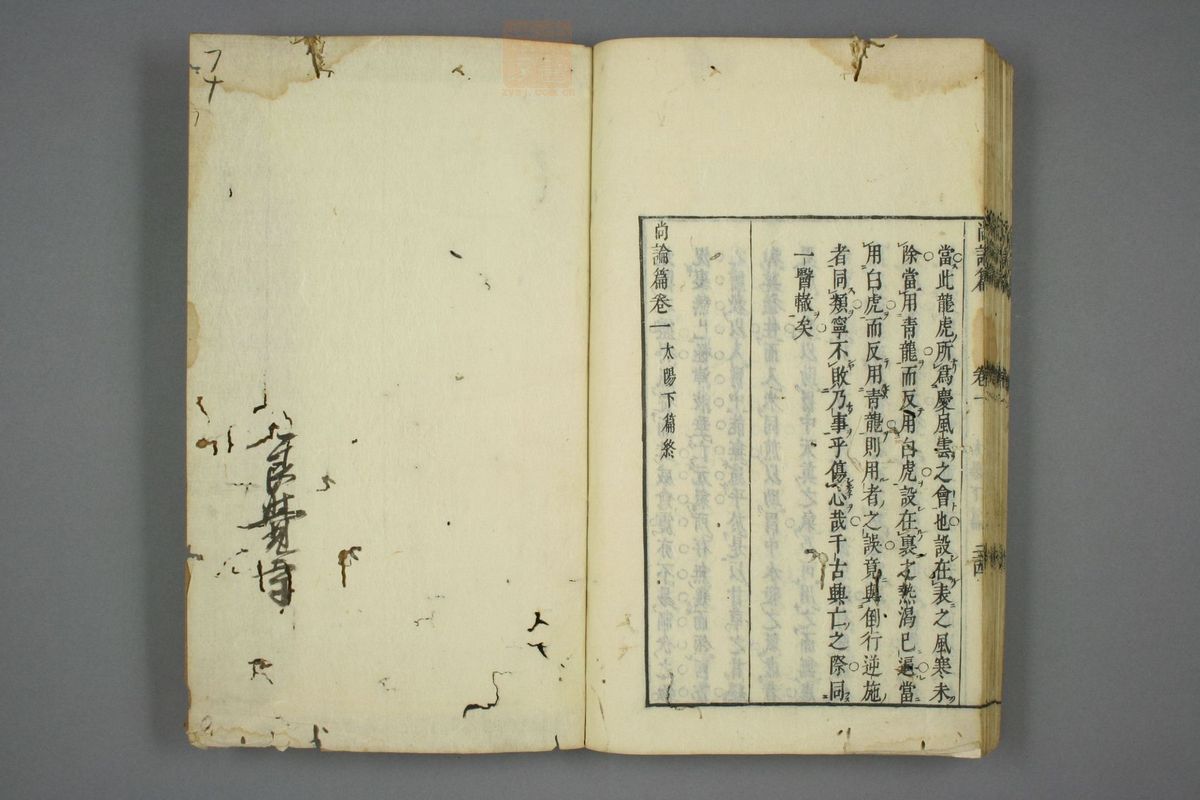 尚論篇 卷一
當此龍虎所爲慶風雲之會也設在表之風寒未
除當用青龍而反用白虎設在裏之熱渴已逼當
用白虎而反用青龍則用者之誤竟與倒行逆施
者同類寧不敗乃事乎傷心哉千古興亡之際同
一醫轍矣
尚論篇卷一太陽下篇終
zysj.com.cn